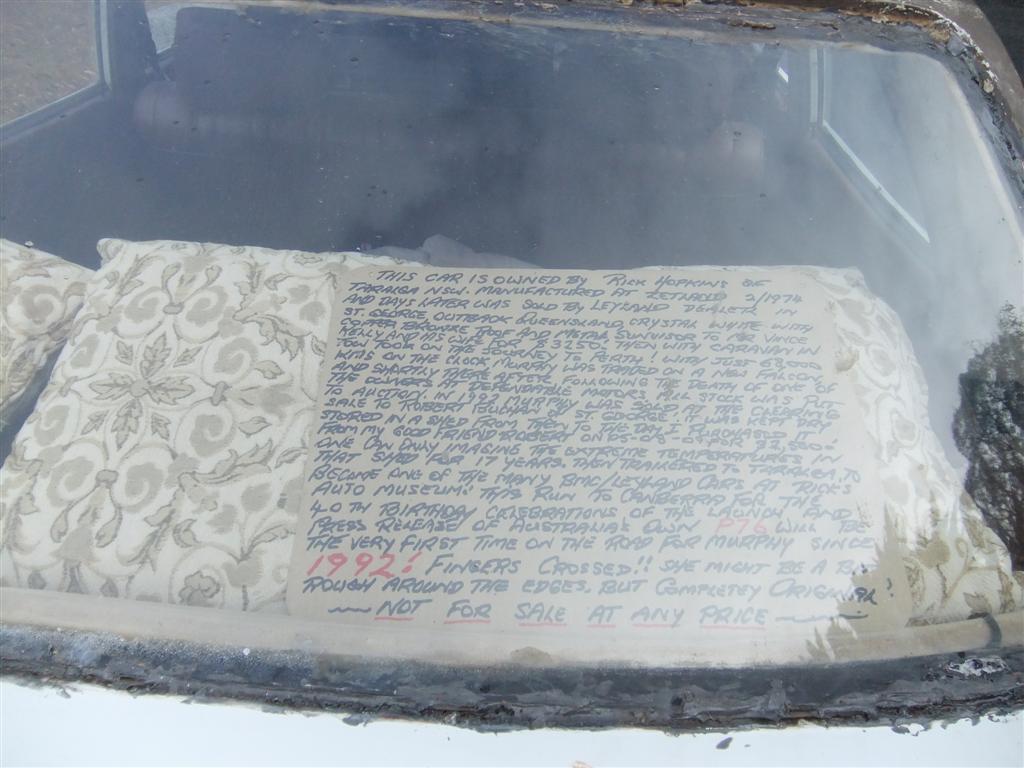 THIS CAR IS OWNED BY RICK HOPKINS OF
TARALGA NSW. MANUFACTURED AT ZETLAND 2/1974
AND DAYS LATER WAS SOLD BY LEYLAND DEALER IN
ST. GEORGE OUTBACK QUEENSLAND, CRYSTAL WHITE WITH
COPPER BRONZE ROOF AND METAL SUNVISOR TO MR VINCE
AND HIS WIFE FOR THEN WITH CARAVAN IN
TOW TOOK ON THE JOURNEY TO PERTH! WITH JUST
KMS ON THE CLOCK MURPHY WAS TRADED ON A NEW
AND SHORTLY THERE AFTER FOLLOWING THE DEATH OF ONE OF
THE OWNERS AT DEPENDABLE MOTORS ALL STOCK WAS PUT
TO AUCTION. IN 1992 MURPHY WAS SOLD AT THE CLEARING
SALE TO ROBERT OF ST GEORGE. IT WAS KEPT DRY
STORED IN A SHED FROM THEN TO THE DAY I PURCHASED IT
FROM MY GOOD FRIEND ROBERT ON
ONE CAN ONLY IMAGINE THE EXTREME TEMPERATURES IN
THAT SHED FOR 17 YEARS. THEN TRAILERED TO TARALGA, TO
BECOME ONE OF THE MANY BMC/LEYLAND CARS AT RICK'S
AUTO MUSEUM. THIS RUN TO CANBERRA FOR THE
40TH BIRTHDAY CELEBRATIONS OF THE LAUNCH AND
PRESS RELEASE OF AUSTRALIA'S OWN P76 WILL BE
THE VERY FIRST TIME ON THE ROAD FOR MURPHY SINCE
1992! FINGERS CROSSED!! SHE MIGHT BE A BIT
ROUGH AROUND THE EDGES. BUT COMPLETEY ORIGINAL!
NOT FOR SALE AT ANY PRICE